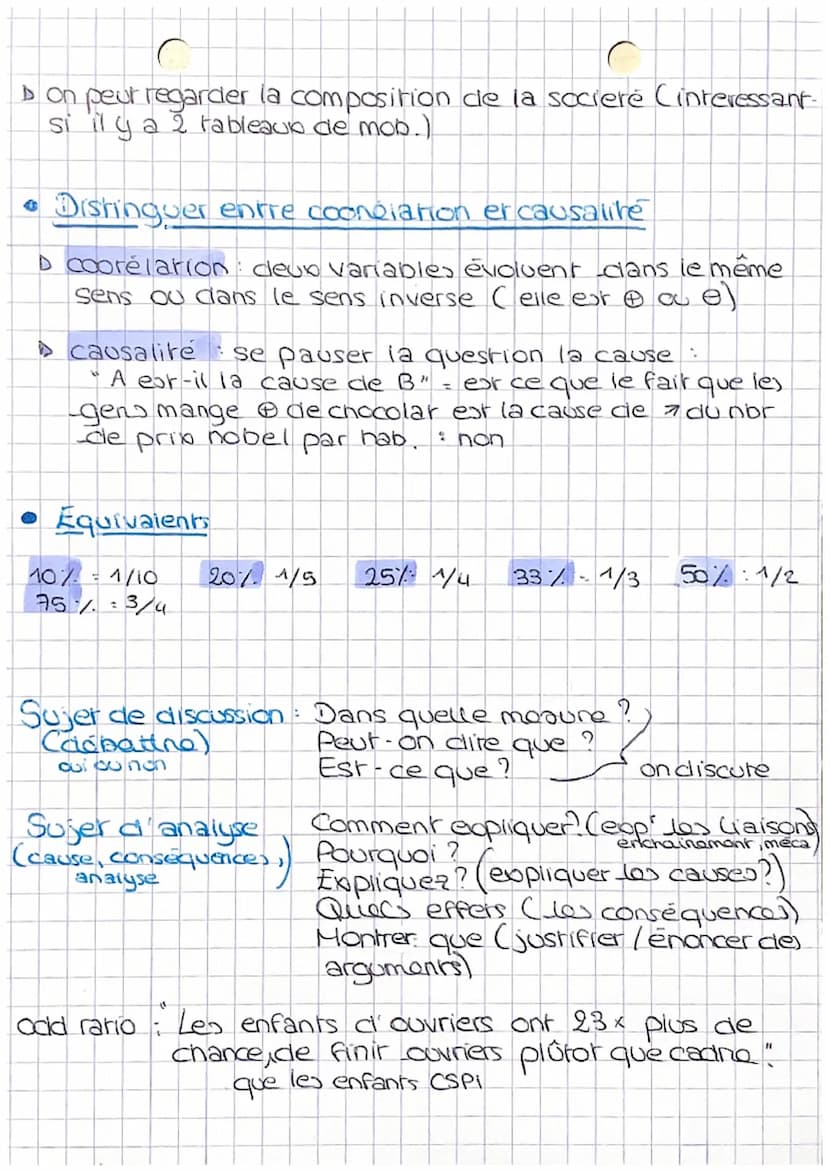 ▷ On peut regarder la composition de la societé (interessant
si il y a 2 tableaux de mob.)
• Distinguer entre coorélation et causalité
▷ coorélation : deux variables évoluent dans le même
sens ou dans le sens inverse (elle est ⊕ ou ⊖)
▷ causalité : se pauser la question la cause :
"A est-il la cause de B" = est ce que le fait que les
gens mange ⊕ de chocolat est la cause de ↗ du nbr
de prix nobel par hab. : non
• Equivalents
10 % = 1/10 20 % 1/5 25 % 1/4 33 % = 1/3 50 % : 1/2
75 % = 3/4
Sujet de discussion : Dans quelle mesure ?
(débattre) Peut-on dire que ?
oui ou non Est-ce que ? on discute
Sujet d'analyse Comment expliquer? (exp° les liaisons
enchainement, méca)
(cause, conséquences, Pourquoi ?
analyse) Expliquez ? (expliquer les causes?)
Quels effets (les conséquences)
Montrer que (justifier / énoncer des
arguments)
odd ratio : "Les enfants d'ouvriers ont 23x plus de
chance, de finir ouvriers plûtot que cadre"
que les enfants CSPI